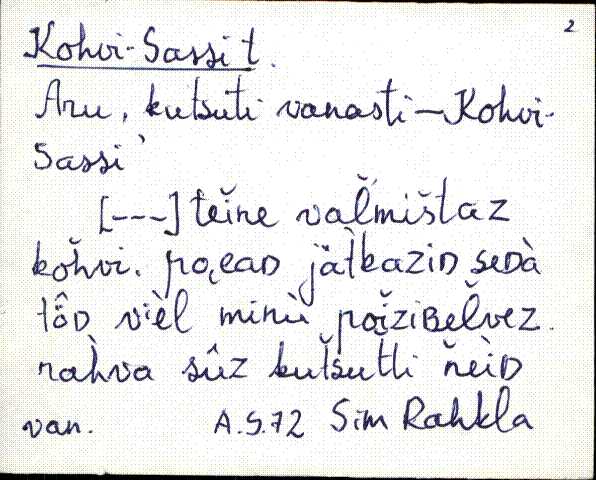 2
Kohvi-Sassi t.
Aru, kutsuti vanasti – Kohvi-
Sassi'
[---] teĭne val̆mišt̀az
kŏhvi. poǫeaD jät̀kaziD seDà
tȫ̂D vièl minù poĭziʙel̆vez.
rahva sûz kut̆šutti ňèiD
van. A.S.72 Sim Rahkla